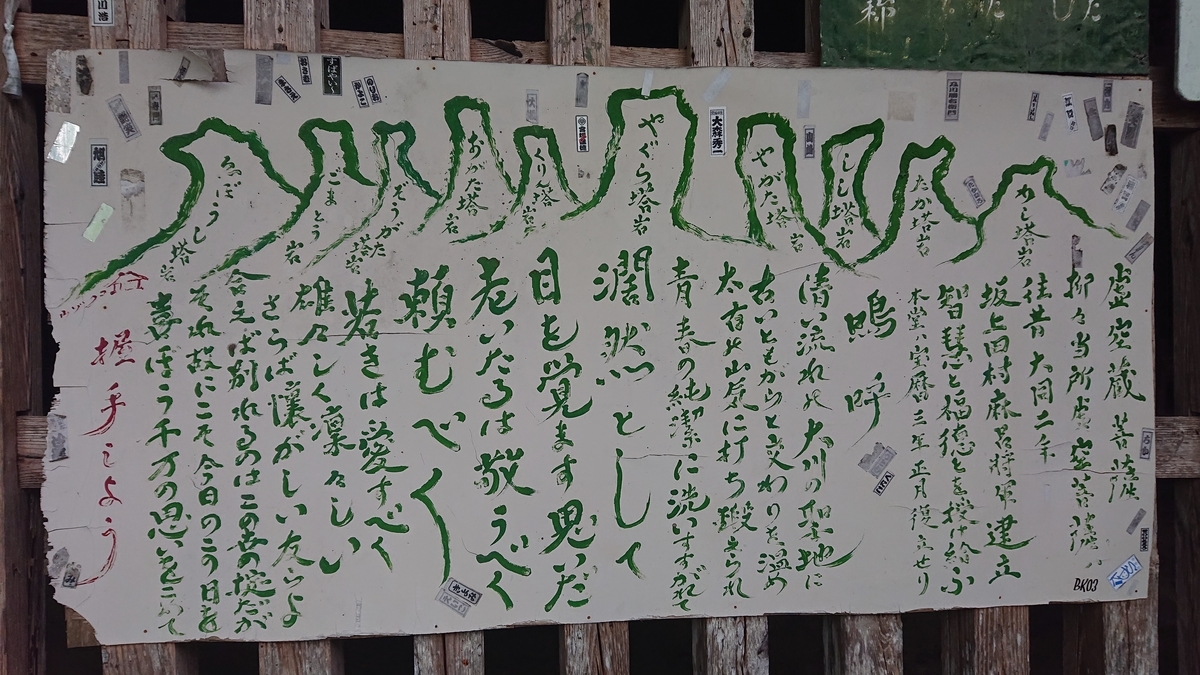 虚空蔵菩薩
抑々当所虚空菩薩ハ
往昔大同二年
坂上田村麻呂将軍建立
智慧と福徳とを授け給ふ
本堂ハ宝暦三年正月復立せり
嗚呼
清い流れの大川の聖地に
古いともがらと交わりを温め
太有の山気に打ち鍛えられ
青春の純潔に洗いすがれて
濶然として
目を覚ます思いだ
老いたるは敬うべく
頼むべく
若きは愛すべく
雄々しく凛々しい
さらば懐がしい友らよ
合えば別れるのはこの世の掟だが
それ故にこそ今日のこの日を
喜ぼう千万の思いをこめて
握手しよう
めし塔岩
たか塔岩
しし塔岩
やがた塔岩
やぐら塔岩
くりん塔岩
おがた塔岩
ぞうがた塔岩
ごまとう岩
ゑぼうし塔岩
大森秀一
BK03